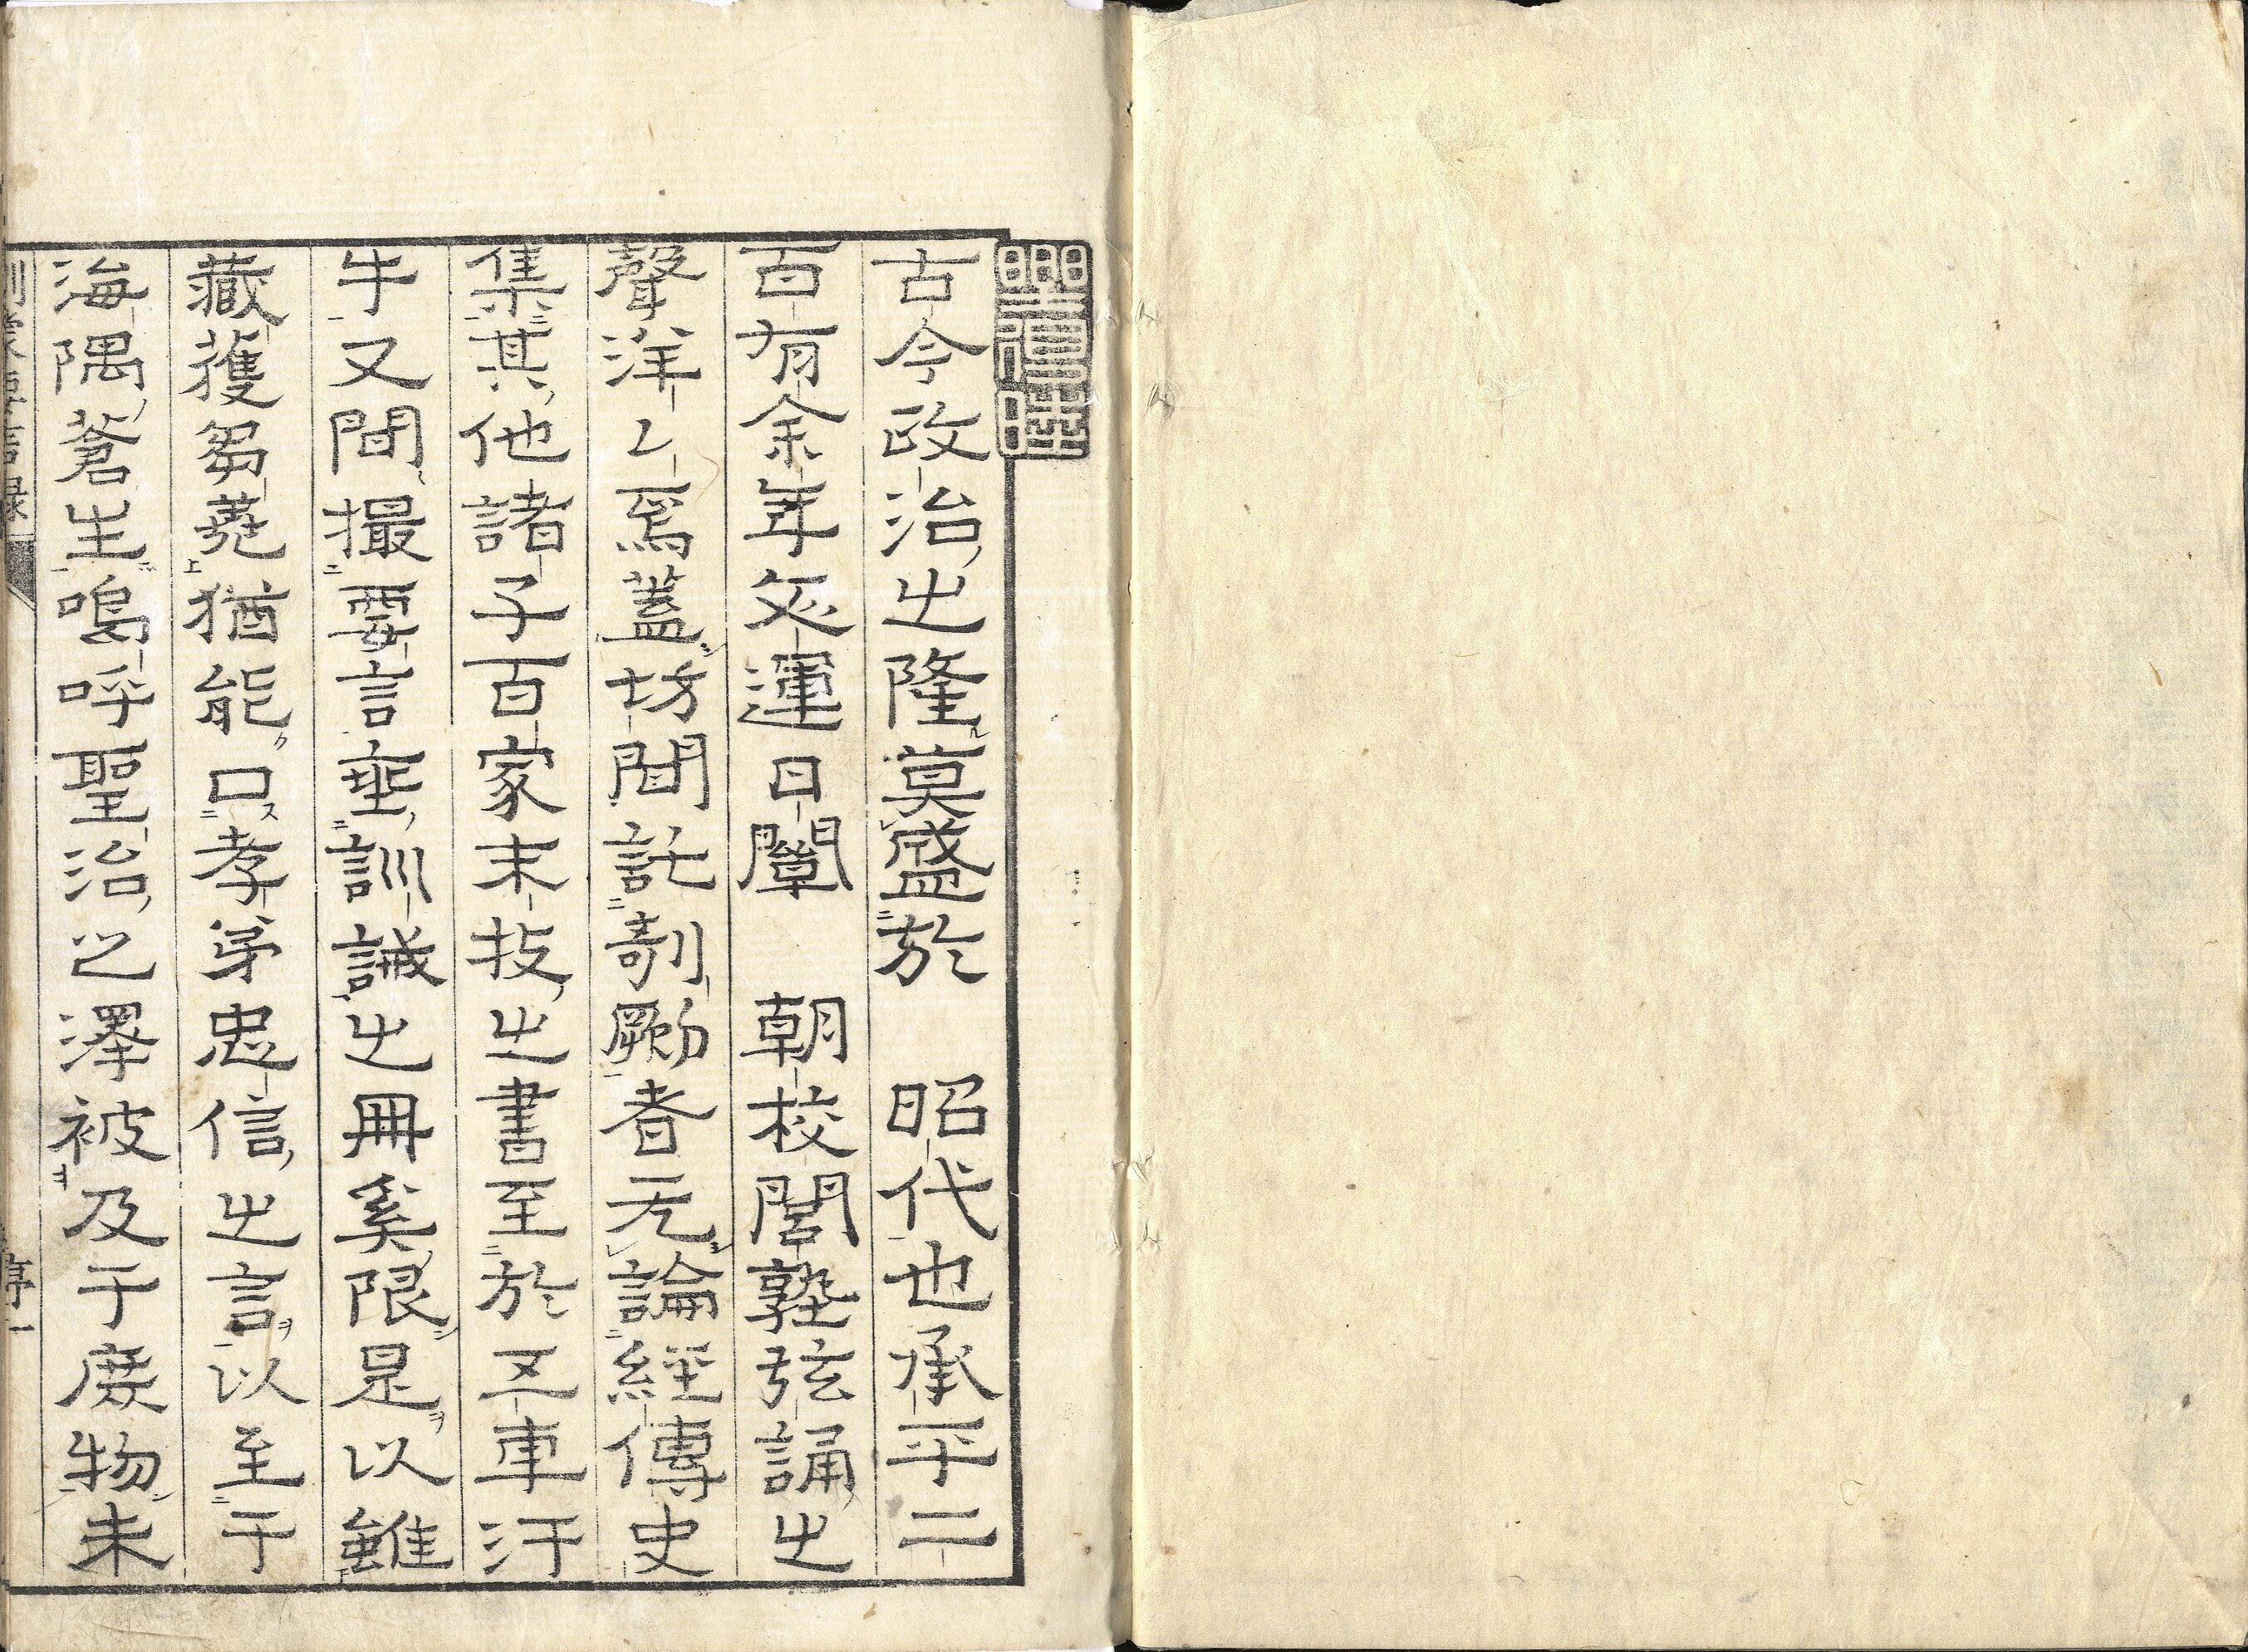 古今政治之隆莫盛於　昭代也承平二
百有余年文運日闡　朝校閭塾弦誦之
聲洋〻焉蓋坊間託剞劂者无論經傳史
集其他諸子百家末技之書至於五車汗
牛又間撮要言垂訓誡之冊奚限是以雖
藏獲芻蕘猶能口孝弟忠信之言以至于
海隅蒼生嗚呼聖治之澤被及于庶物未
序一